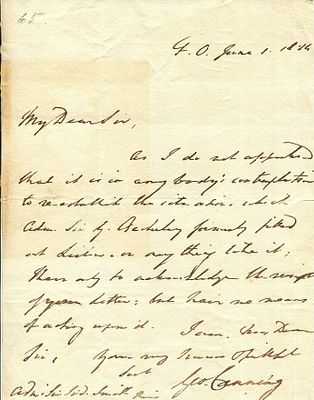 65
F.O. June 1. 18
My Dear Sir,
As I do not apprehend
that it is in any body's contemplation
to re-establish the situation, which
Adm. Sir G. Berkeley formerly filled
at Lisbon or any thing like it;
I have only to acknowledge the receipt
of your letter; but have no means
of acting upon it.
I am, Dear
Sir, your
Geo. Canning
Adm. Sir Sid. Smith